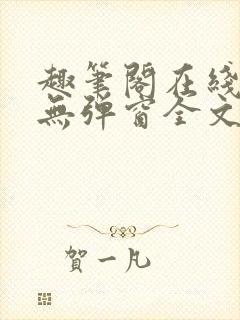 趣筆閣在綫
無弹窗全文
賀一凡